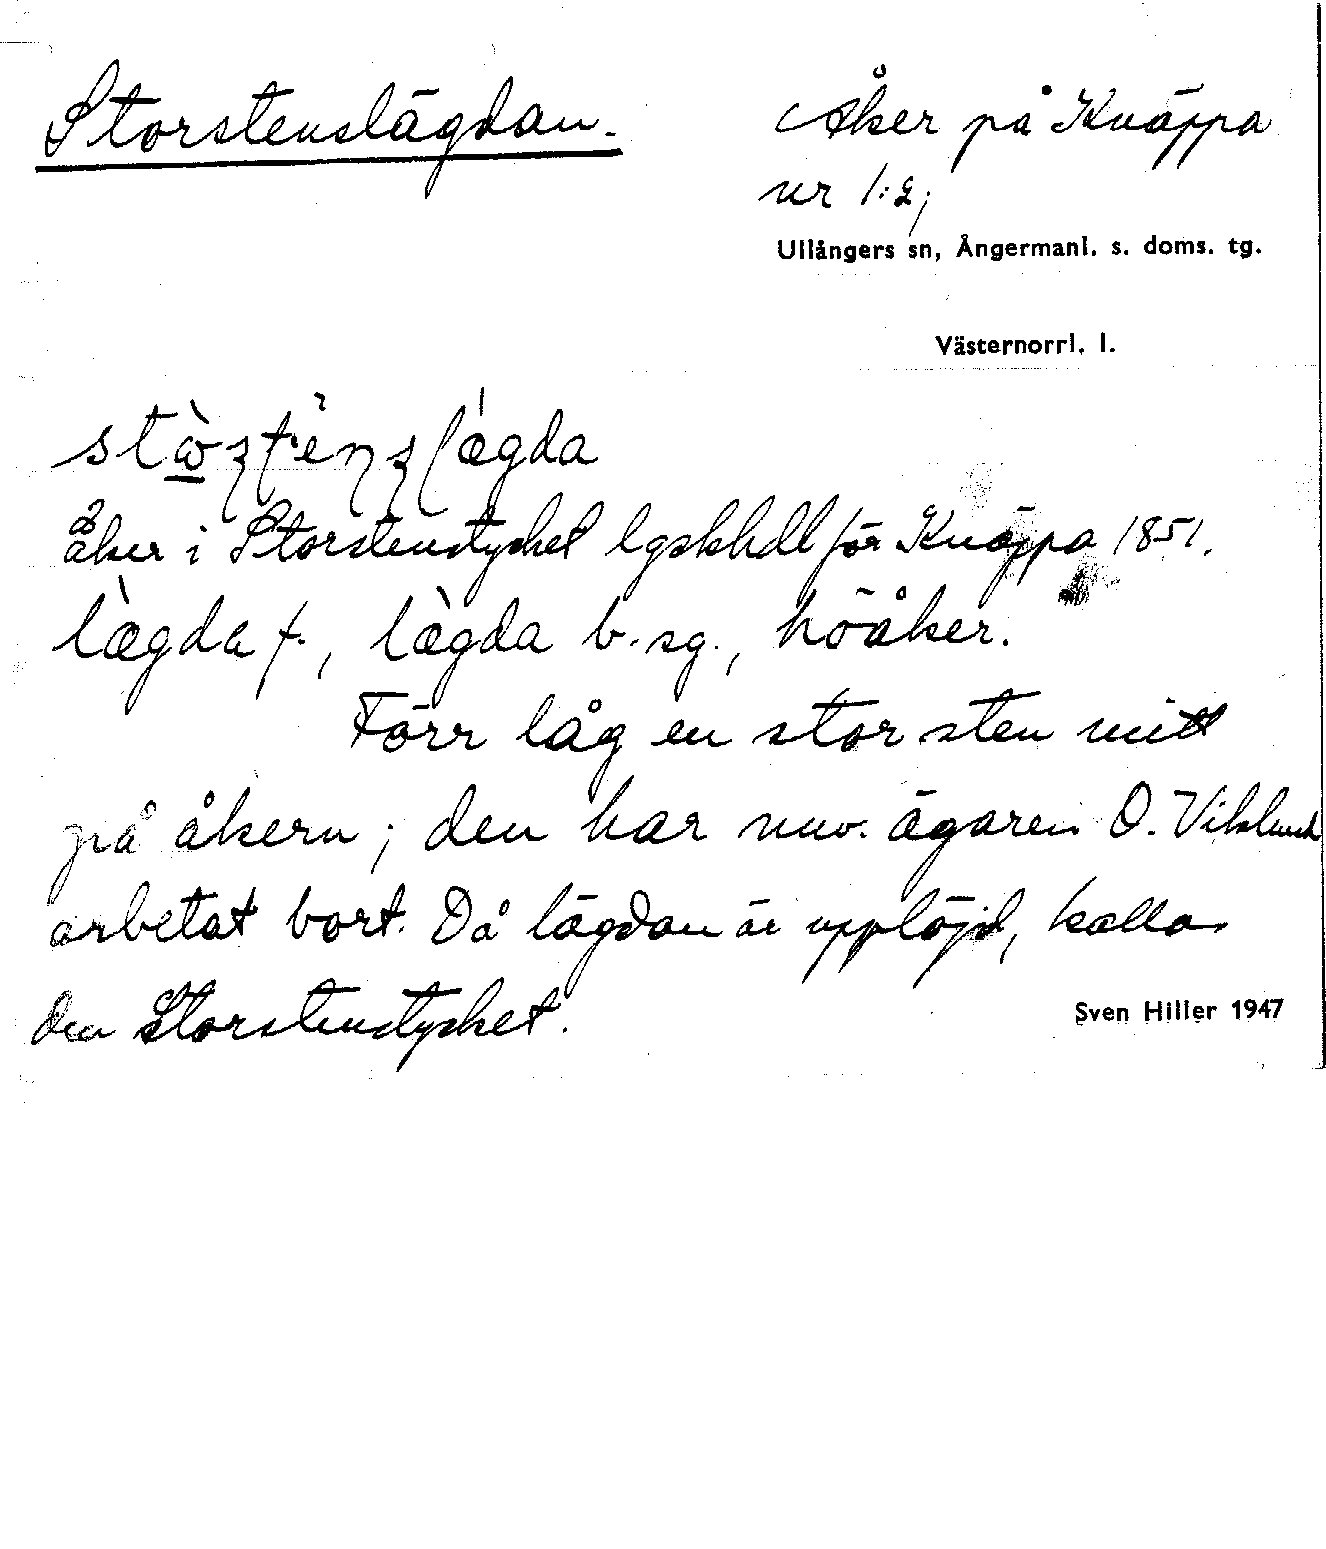 Storstenslägdan.
Åker på Knäppa
nr 1:2;
Ullångers sn, Ångermanl. s. doms. tg.
Västernorrl. l.
åker i Storstenstycket lgskhdl för Knäppa 1851.
lægda f., lægda b. sg., höåker.
Förr låg en stor sten mitt
på åkern; den har nuv. ägaren O. Viklund
arbetat bort. Då lägdan är upplöjd, kallas
den Storstenstycket.
Sven Hiller 1947